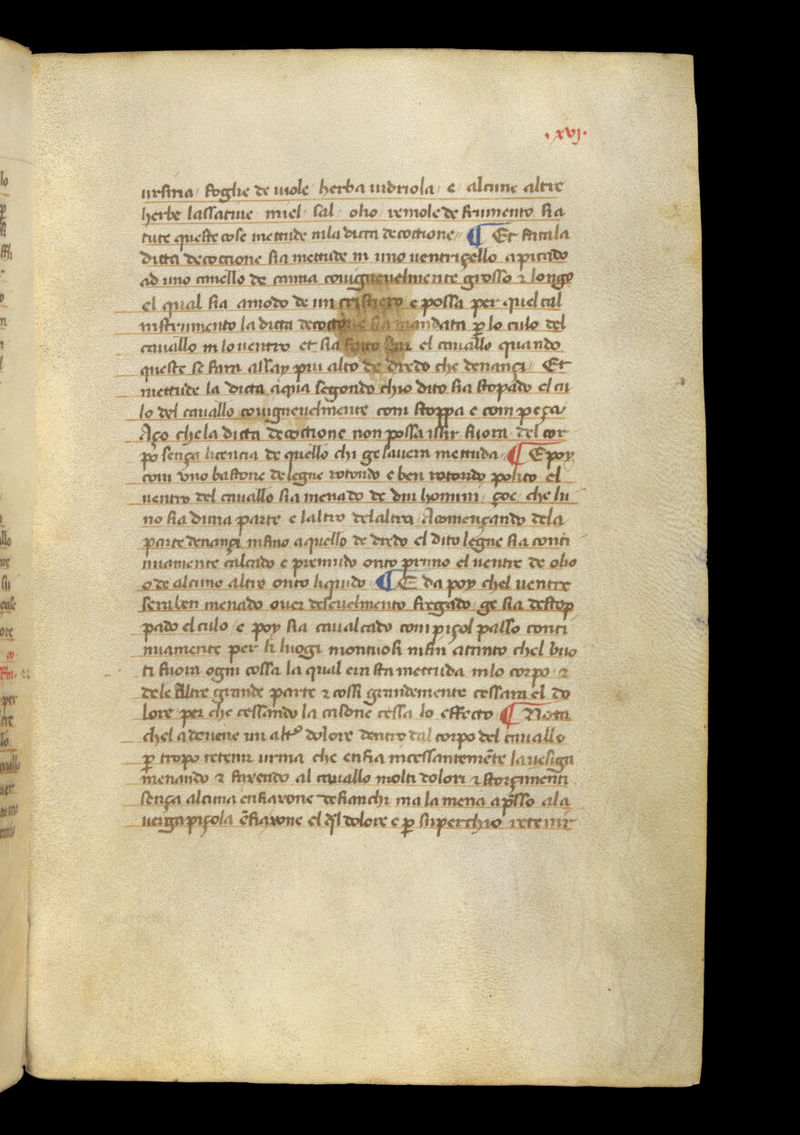 · xvj ·
ursina / foglie de uiole / herba uidriola / e / alcune altre
herbe lassatiue miel / sal / olio / remole de frumento sia
tute queste cose mettude nila dicta decoctione // ¶ Et fata la
dicta decoctione sia mettude in uno uentriçello apicado
ad uno canello de canna conuigneuelmente grosso ⁊ longo
el qual sia amodo de un cristiero e possa per quel tal
instrumento la dicta decoctione sia mandata ꝑ lo culo del
cauallo in lo uentro et sia fatto star el cauallo quando
queste se fara assay piu alto de dredo che denançi // Et
mettude la dicta aqua segondo chio dito sia stopado el cu
lo del cauallo conuigneuelmente com stoppa e com peça /
Aço che la dicta decoctione non possa issir fuora del cor
po sença licencia de quello chi ge lauera mettuda // ¶ E poy
com vno bastone de legne rotondo e ben rotondo polito el
uentro del cauallo sia menado de dui homini / çoe / che lu
no sia duna parte e laltro delaltra / Acomençando dela
parte denançi infino aquello de dredo el dito legne sia conti
nuamente calcado e premudo onto primo el uentre de olio
o de alcuno altro onto liquido / ¶ E da poy chel uentre
sera ben menado ouer fregado ge sia destop
pado el culo e poy sia caualcado com piçol passo conti
nuamente per li luogi montuosi infin atanto chel buo
ti fuora ogni cossa la qual era sta mettuda in lo corpo · ⁊
dele altre grande parte ⁊ cossi grandemente cessara el do
lore per che cessando la casone cessa lo effecto ¶ Nota
chel adeuene un altro dolore dentro dal corpo del cauallo
ꝑ tropo retenir urina che enfia incessantemẽte la uesiga
menando ⁊ fazendo al cauallo molti dolori ⁊ storçimenti
sença alcuna enfiaxone de fianchi ma la mena apsso ala
uerga piçola ẽfiaxone el dolore e ꝑ superchio retenir